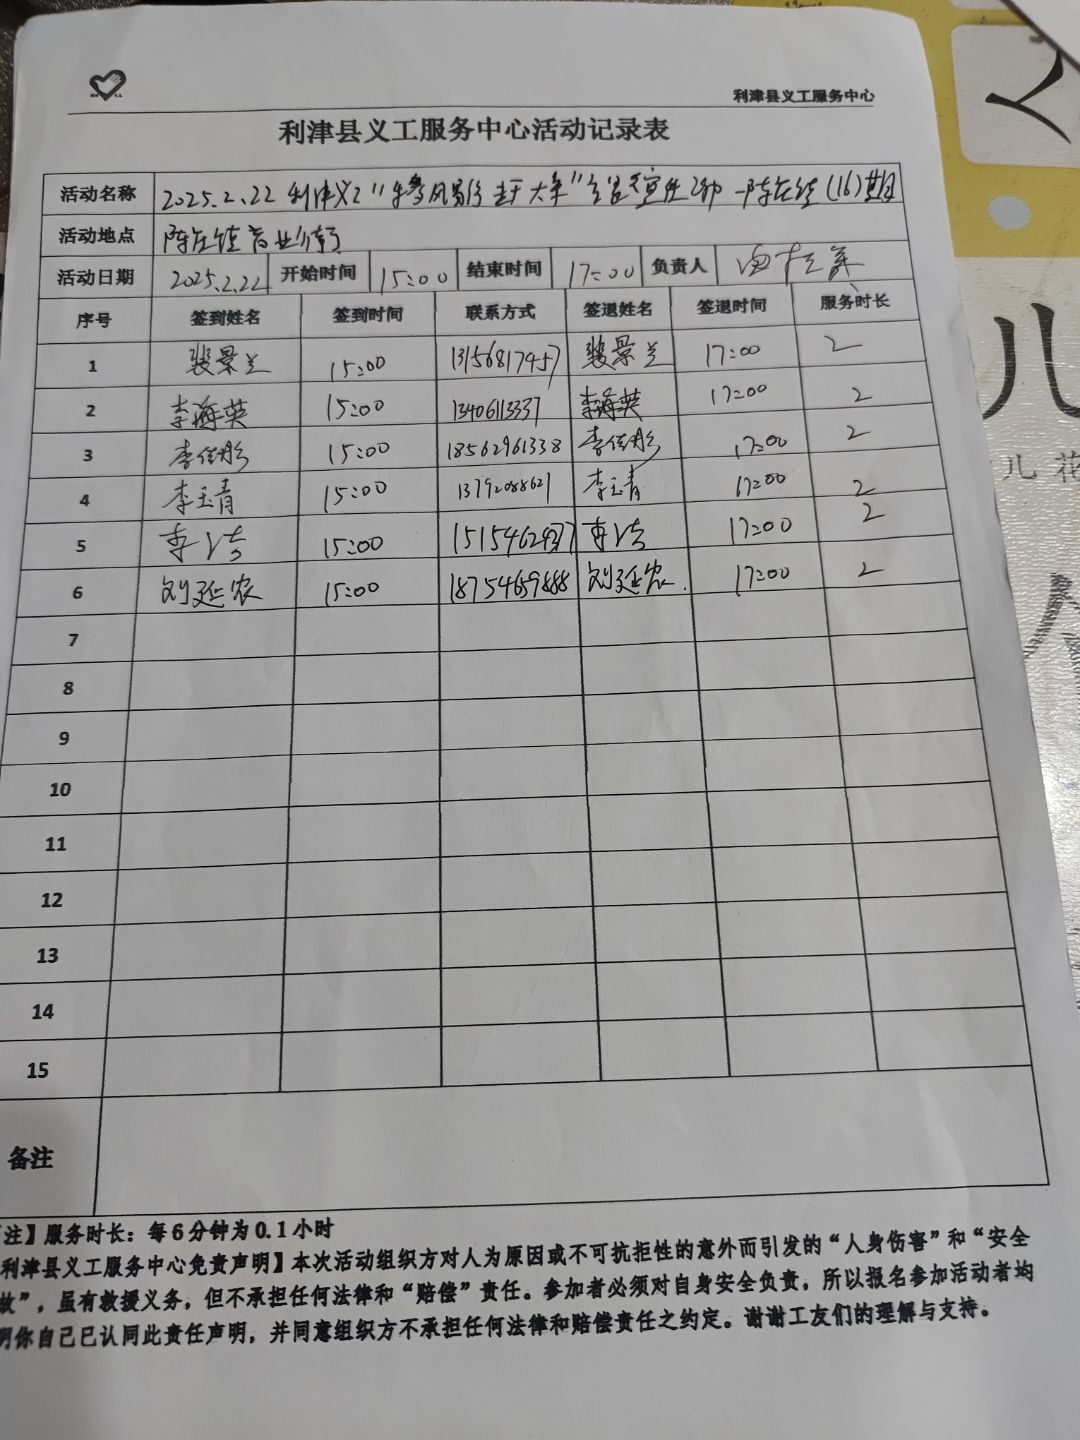 利津县义工服务中心
利津县义工服务中心活动记录表
活动名称 2025.2.22 利津义工"移风易俗 在于大年" 陈庄镇(16)期
活动地点 陈庄镇商业街
活动日期 2025.2.22 开始时间 15:00 结束时间 17:00 负责人
序号 签到姓名 签到时间 联系方式 签退姓名 签退时间 服务时长
1 裴景兰 15:00 13156817457 裴景兰 17:00 2
2 李海英 15:00 13406113337 李海英 17:00 2
3 李佳彤 15:00 18562961338 李佳彤 17:00 2
4 李玉青 15:00 13792088621 李玉青 17:00 2
5 15:00 17:00 2
6 刘延农 15:00 18754659888 刘延农 17:00 2
7
8
9
10
11
12
13
14
15
备注
注】服务时长：每6分钟为0.1小时
利津县义工服务中心免责声明】本次活动组织方对人为原因或不可抗拒性的意外而引发的“人身伤害”和“安全
故”，虽有救援义务，但不承担任何法律和“赔偿”责任。参加者必须对自身安全负责，所以报名参加活动者均
明你自己已认同此责任声明，并同意组织方不承担任何法律和赔偿责任之约定。谢谢工友们的理解与支持。
儿
儿花